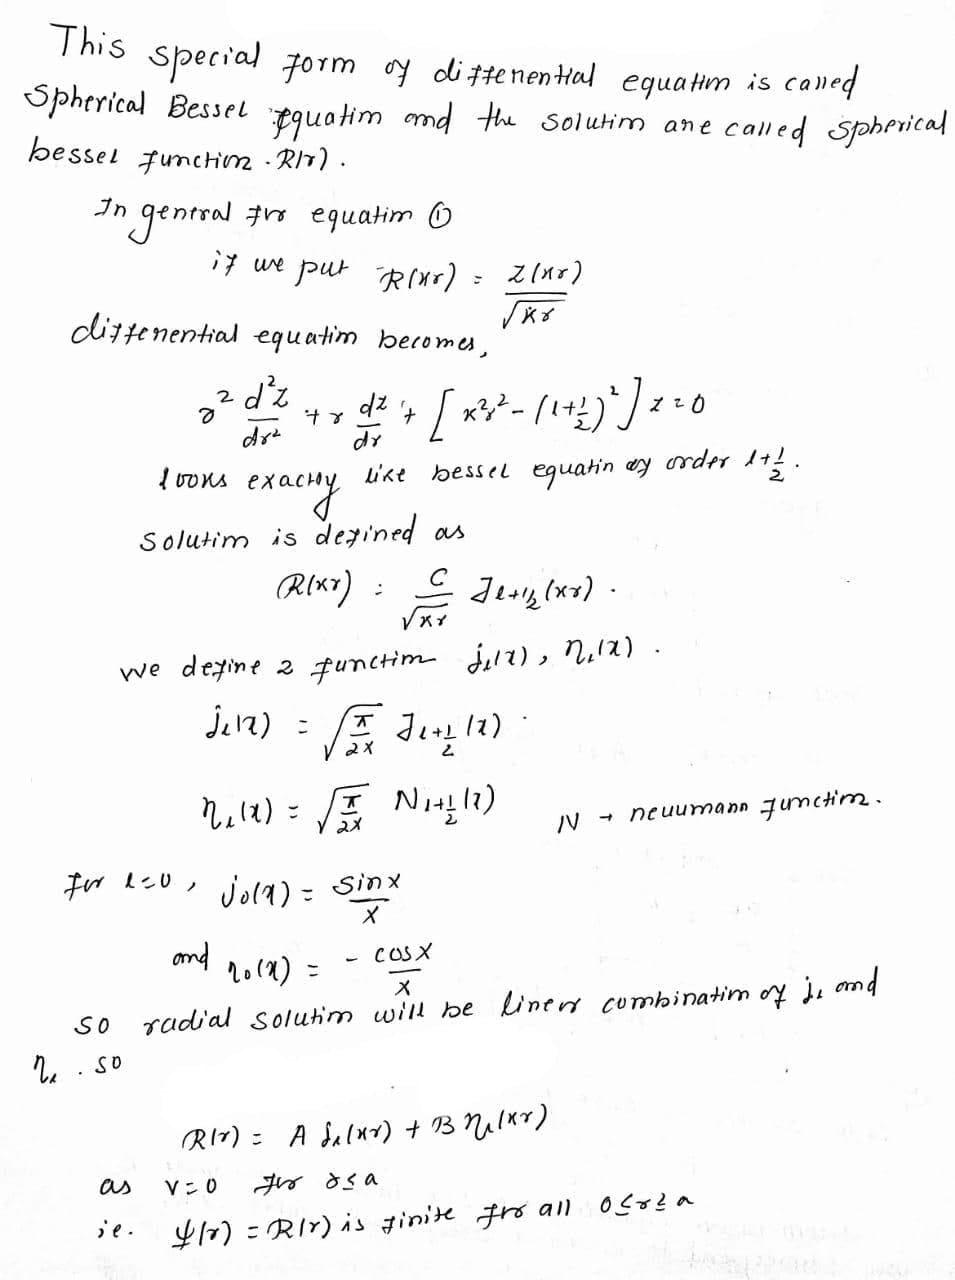 This special form of differential equation is called
Spherical Bessel Equation and the solution are called spherical
bessel function. R(r).
In general for equation ①
if we put R(kr) = Z(kr) / √kr
differential equation becomes,
r² d²Z/dr² + r dZ/dr + [k²r² - (l+1/2)²] Z = 0
looks exactly like bessel equation of order l+1/2.
Solution is defined as
R(kr) = C/√kr J_{l+1/2}(kr).
we define 2 function j_l(x), η_l(x).
j_l(x) = √(π/2x) J_{l+1/2}(x)
η_l(x) = √(π/2x) N_{l+1/2}(x) N → neuumann function.
for l=0, j₀(x) = sinx/x
and η₀(x) = - cosx/x
so radial solution will be linear combination of j_l and
η_l. so
R(r) = A j_l(kr) + B η_l(kr)
as V=0 for r≤a
ie. ψ(r) = R(r) is finite for all 0≤r≤a